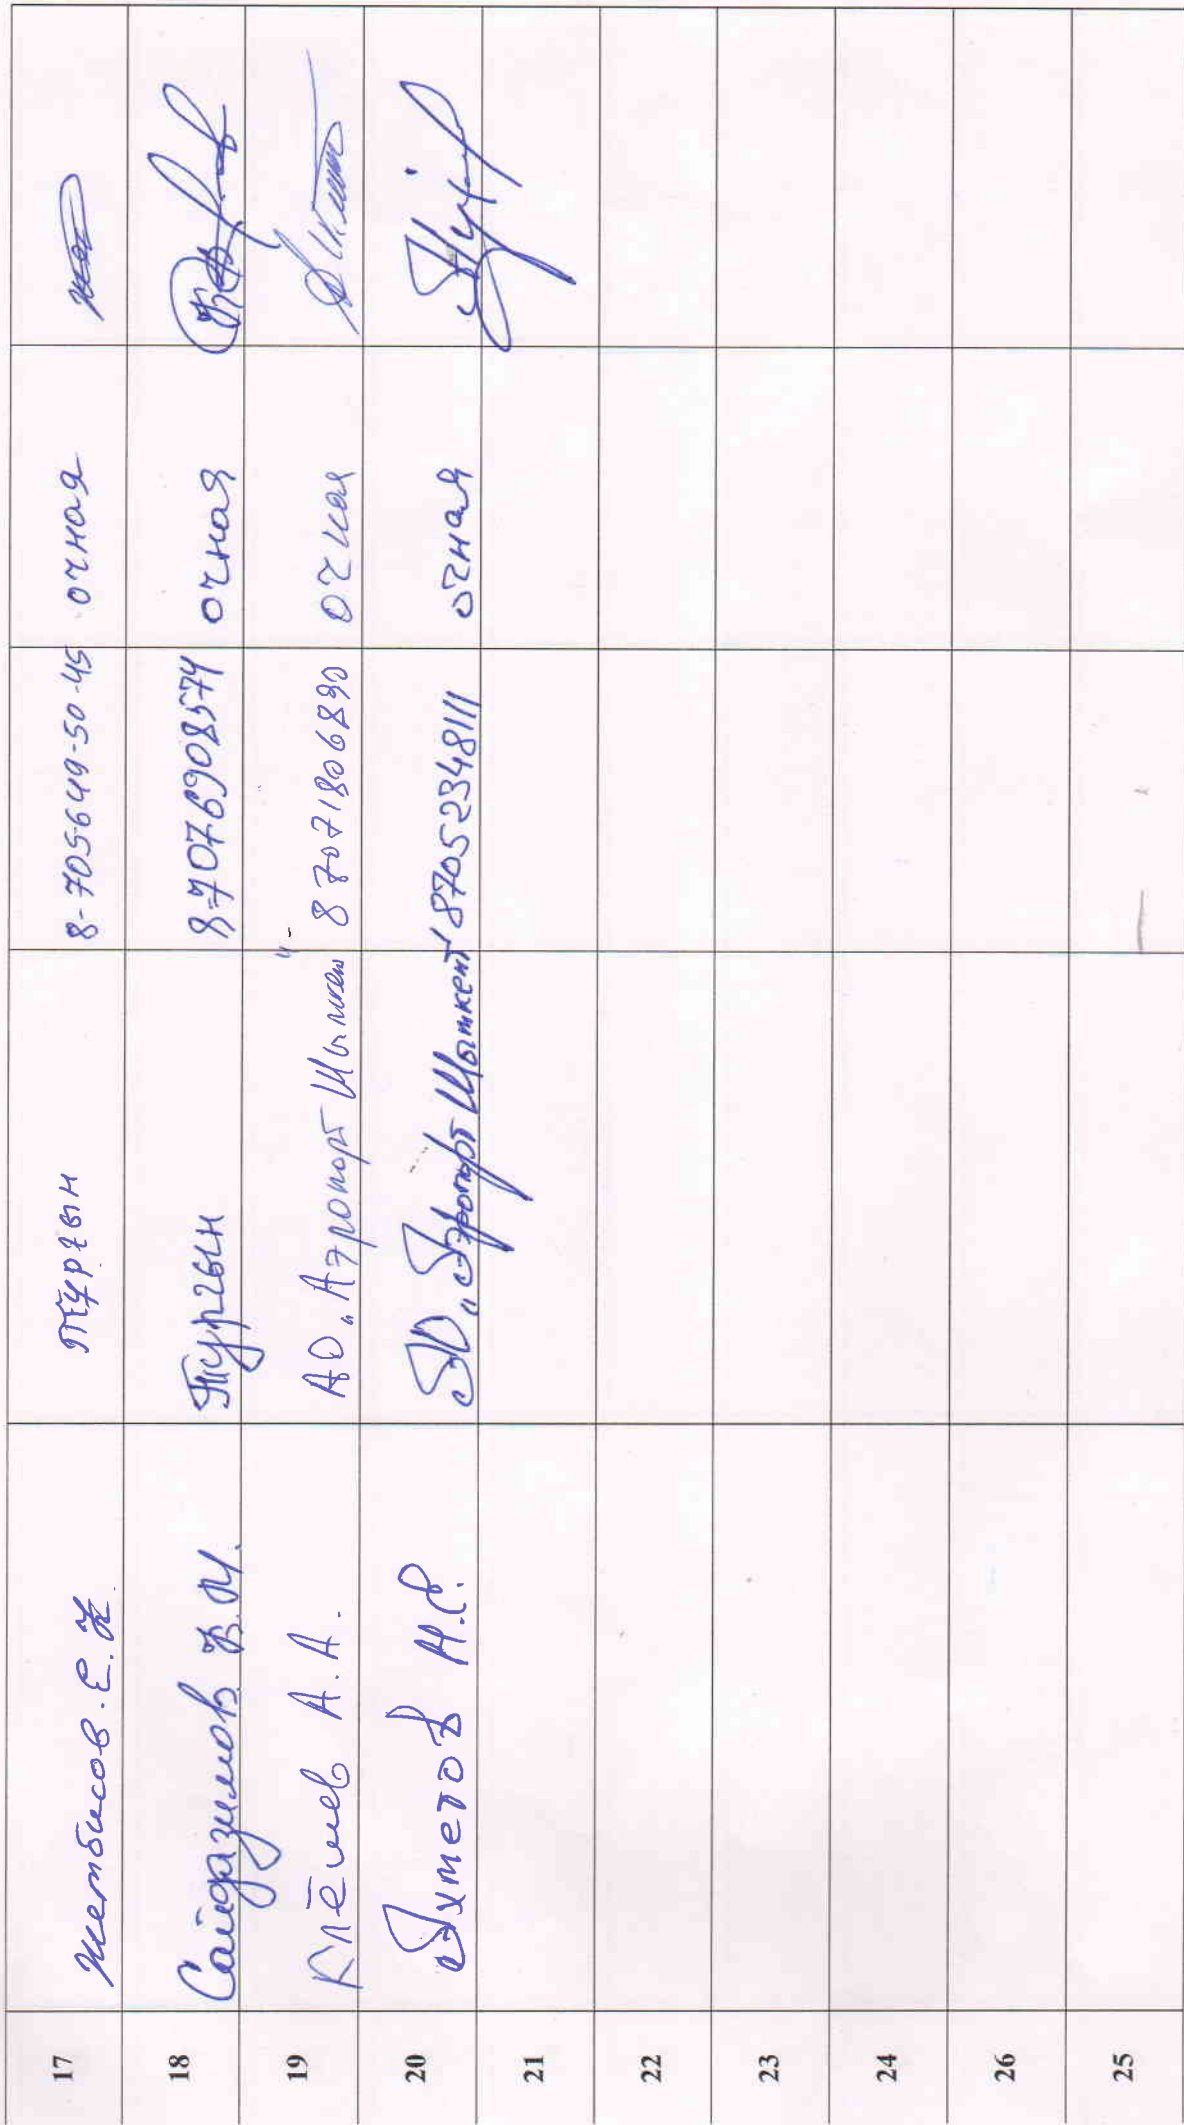 17 Жетбисов. Е. Ж. Тургын 8-705649-50-45 очная
18 Сайдазимов Ж.М. Тургын 8-7076908574 очная
19 Клёшев А.А. АО „Аэропорт Шымкент" 87071806890 очная
20 Ахметов Н.С. АО „Аэропорт Шымкент" 87052348111 очная
21
22
23
24
26
25